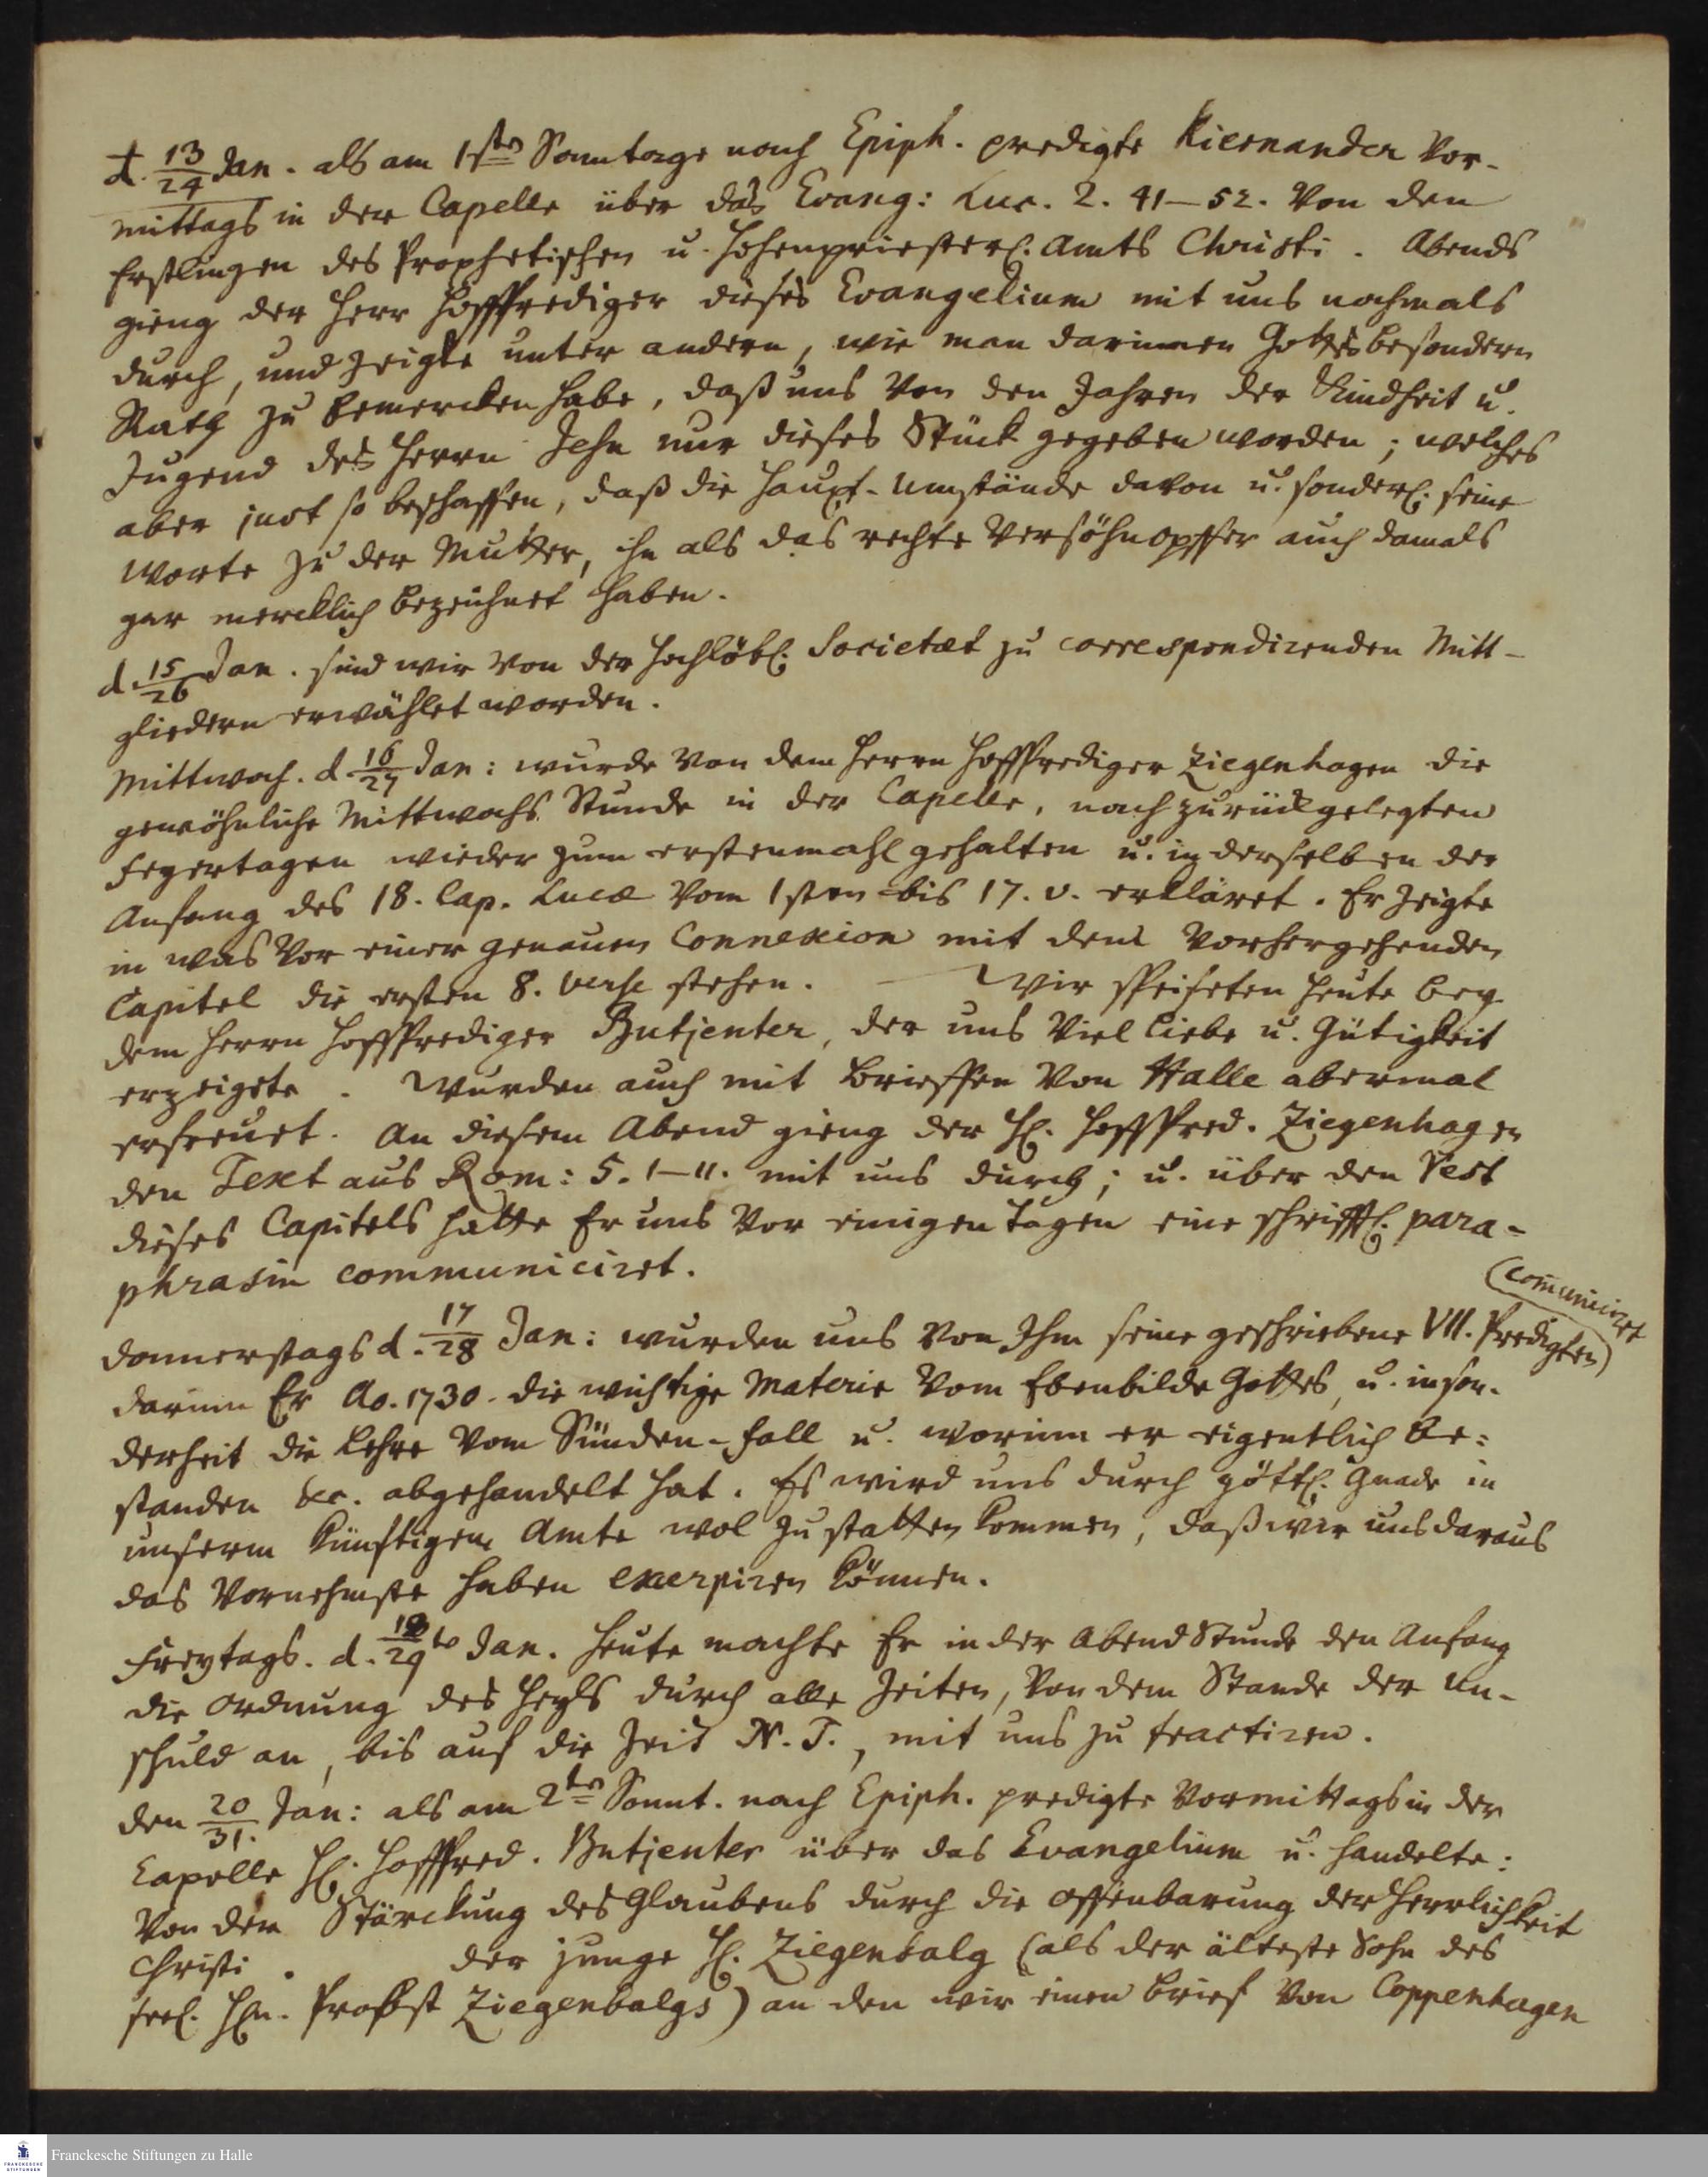 d. 13/24 Jan. als am 1sten Sonntage nach Epiph. predigte Kiernander Vor-
mittags in der Capelle über das Evang: Luc. 2. 41–52. Von den
Erstlingen des Prophetischen u. Hohenpriesterl. Amts Christi. Abends
gieng der Herr Hoffprediger dieses Evangelium mit uns nochmals
durch, und zeigte unter andern, wie man darinnen Gottes besondern
Rath zu bemercken habe, daß uns von den Jahren der Kindheit u.
Jugend des Herrn Jesu nur dieses Stück gegeben worden; welches
aber just so beschaffen, daß die Haupt-Umstände davon u. sonderl. seine
Worte zu der Mutter, ihn als das rechte Versöhnopffer auch damals
gar mercklich bezeichnet haben.
d. 15/26 Jan. sind wir von der Hochlöbl. Societæt zu correspondirenden Mitt-
gliedern erwählet worden.
Mittwoch. d. 16/27 Jan: wurde von dem Herrn Hoffprediger Ziegenhagen die
gewöhnliche Mittwochs Stunde in der Capelle, nach zurückgelegten
Feyertagen wieder zum erstenmahl gehalten u. in derselben der
Anfang des 18. Cap. Lucæ vom 1sten bis 17. v. erkläret. Er zeigte
in was vor einer genauen Connexion mit dem vorhergehenden
Capitel die ersten 8. Verse stehen. – Wir speiseten heute bey
dem Herrn Hoffprediger Butjenter, der uns viel Liebe u. Gütigkeit
erzeigete. Wurden auch mit Brieffen von Halle abermal
erfreuet. An diesem Abend gieng der H. Hoffpred. Ziegenhagen
den Text aus Rom: 5. 1–11. mit uns durch; u. über den Rest
dieses Capitels hatte Er uns vor einigen Tagen eine schrifftl. para-
phrasin communiciret.
Donnerstags d. 17/28 Jan: wurden uns von Ihm seine geschriebene VII. Predigten (communiciret)
darinn Er Ao. 1730. die wichtige Materie vom Ebenbilde Gottes, u. inson-
derheit die Lehre vom Sünden-Fall u. worinn er eigentlich be-
standen &c. abgehandelt hat. Es wird uns durch göttl. Gnade in
unserm künftigen Amte wol zu statten kommen, daß wir uns daraus
das Vornehmste haben excerpiren können.
Freytags. d. 18/29 to Jan. Heute machte Er in der Abend Stunde den Anfang
die Ordnung des Heyls durch alle Zeiten, von dem Stande der Un-
schuld an, bis auf die Zeit N. T., mit uns zu tractiren.
den 20/31. Jan: als am 2ten Sonnt. nach Epiph. predigte Vormittags in der
Capelle H. Hoffpred. Butjenter über das Evangelium u. handelte:
Von der Stärckung des Glaubens durch die Offenbarung der Herrlichkeit
Christi. der junge H. Ziegenbalg (als der älteste Sohn des
seel. Hn. Probst Ziegenbalgs) an den wir einen Brief von Coppenhagen
FRANCKESCHE STIFTUNGEN
Franckesche Stiftungen zu Halle